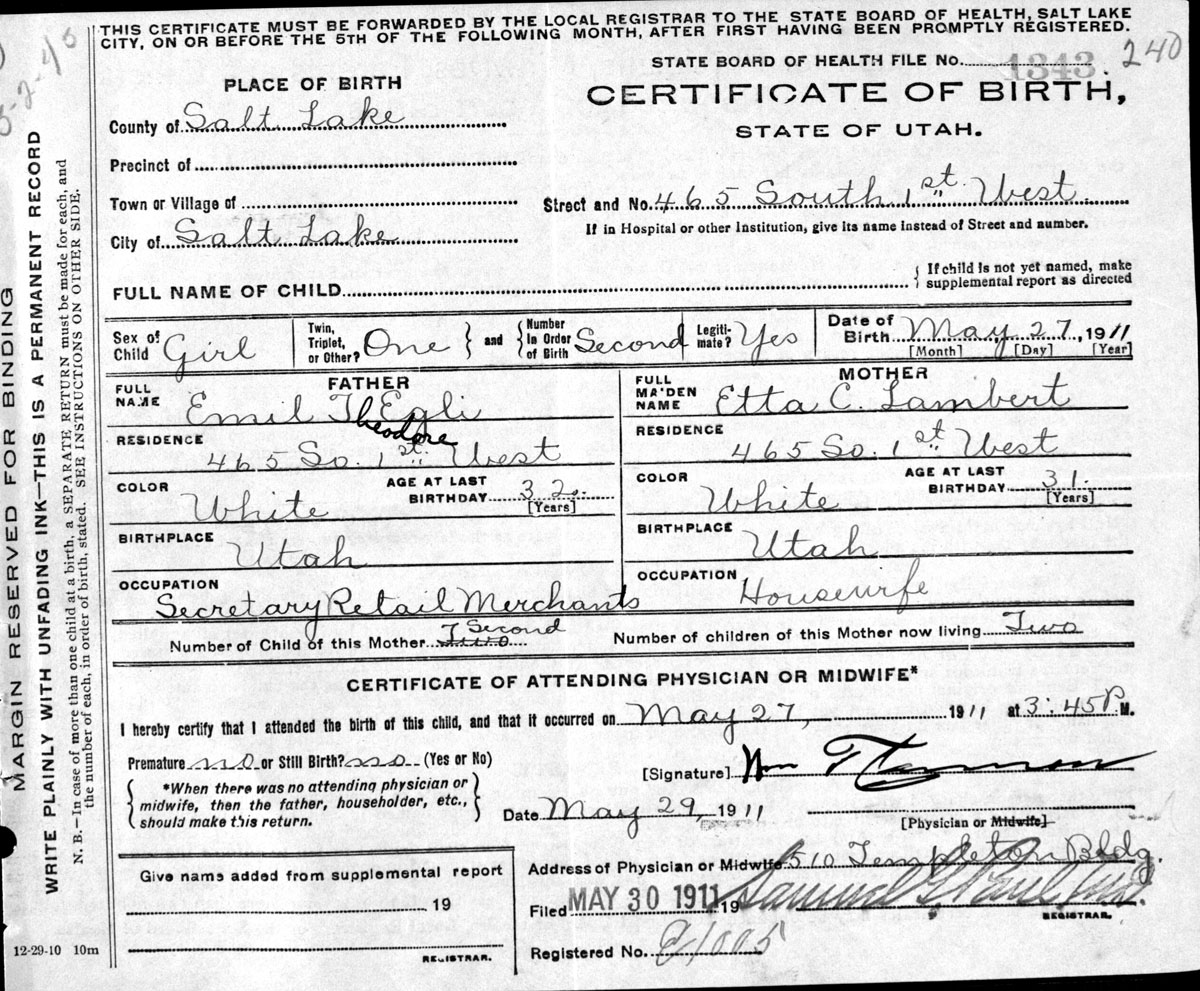 THIS CERTIFICATE MUST BE FORWARDED BY THE LOCAL REGISTRAR TO THE STATE BOARD OF HEALTH, SALT LAKE
CITY, ON OR BEFORE THE 5TH OF THE FOLLOWING MONTH, AFTER FIRST HAVING BEEN PROMPTLY REGISTERED.
STATE BOARD OF HEALTH FILE No. 1343. 240
PLACE OF BIRTH
CERTIFICATE OF BIRTH,
STATE OF UTAH.
County of Salt Lake
Precinct of
Town or Village of
Street and No. 465 South 1st West
City of Salt Lake
If in Hospital or other Institution, give its name instead of Street and number.
FULL NAME OF CHILD
{ If child is not yet named, make
supplemental report as directed
Sex of Child Girl
Twin, Triplet, or Other? One } and { Number In Order of Birth Second
Legiti-mate? Yes
Date of Birth May 27, 1911
[Month] [Day] [Year]
FATHER
FULL NAME Emil Th Egli
Theodore
RESIDENCE 465 So. 1st West
COLOR White
AGE AT LAST BIRTHDAY 32
[Years]
BIRTHPLACE Utah
OCCUPATION Secretary Retail Merchants
MOTHER
FULL MAIDEN NAME Etta C. Lambert
RESIDENCE 465 So. 1st West
COLOR White
AGE AT LAST BIRTHDAY 31
[Years]
BIRTHPLACE Utah
OCCUPATION Housewife
Number of Child of this Mother Two Second
Number of children of this Mother now living Two
CERTIFICATE OF ATTENDING PHYSICIAN OR MIDWIFE*
I hereby certify that I attended the birth of this child, and that it occurred on May 27, 1911 at 3:45 P. M.
Premature no or Still Birth? no (Yes or No)
[Signature] Wm
{ *When there was no attending physician or
midwife, then the father, householder, etc.,
should make this return. }
Date May 29, 1911
[Physician or Midwife]
Address of Physician or Midwife 510 Templeton Bldg.
Give name added from supplemental report
19
REGISTRAR.
Filed MAY 30 1911 19 Samuel
REGISTRAR.
Registered No. 1005
12-29-10 10m
MARGIN RESERVED FOR BINDING
WRITE PLAINLY WITH UNFADING INK—THIS IS A PERMANENT RECORD
N. B.—In case of more than one child at a birth, a SEPARATE RETURN must be made for each, and
the number of each, in order of birth, stated. SEE INSTRUCTIONS ON OTHER SIDE.